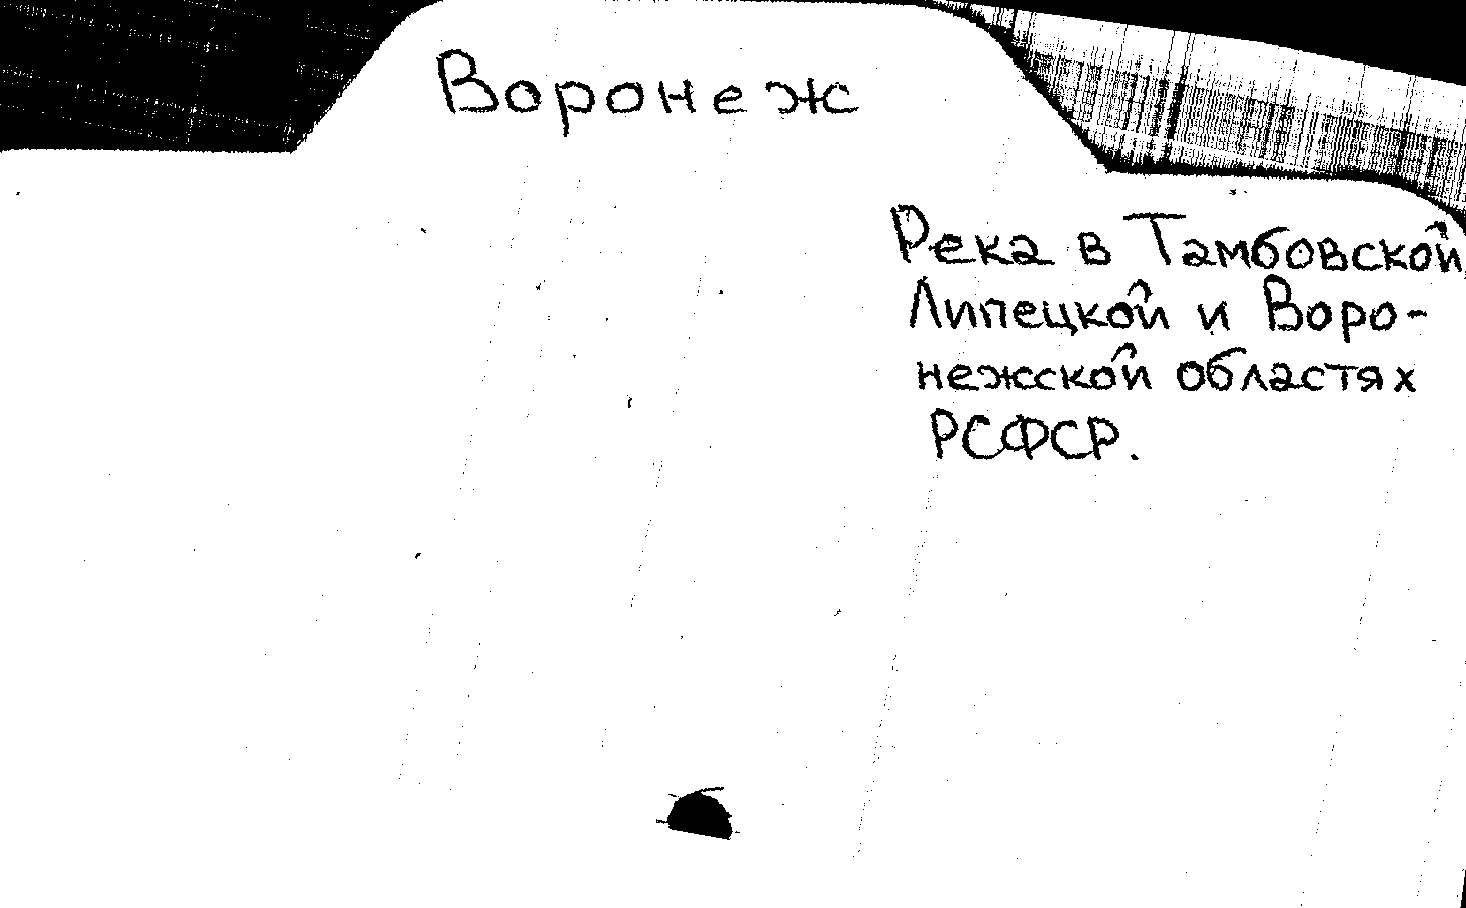 Воронеж
Река в Тамбовской
Липецкой и Воро-
нежской областях
РСФСР.